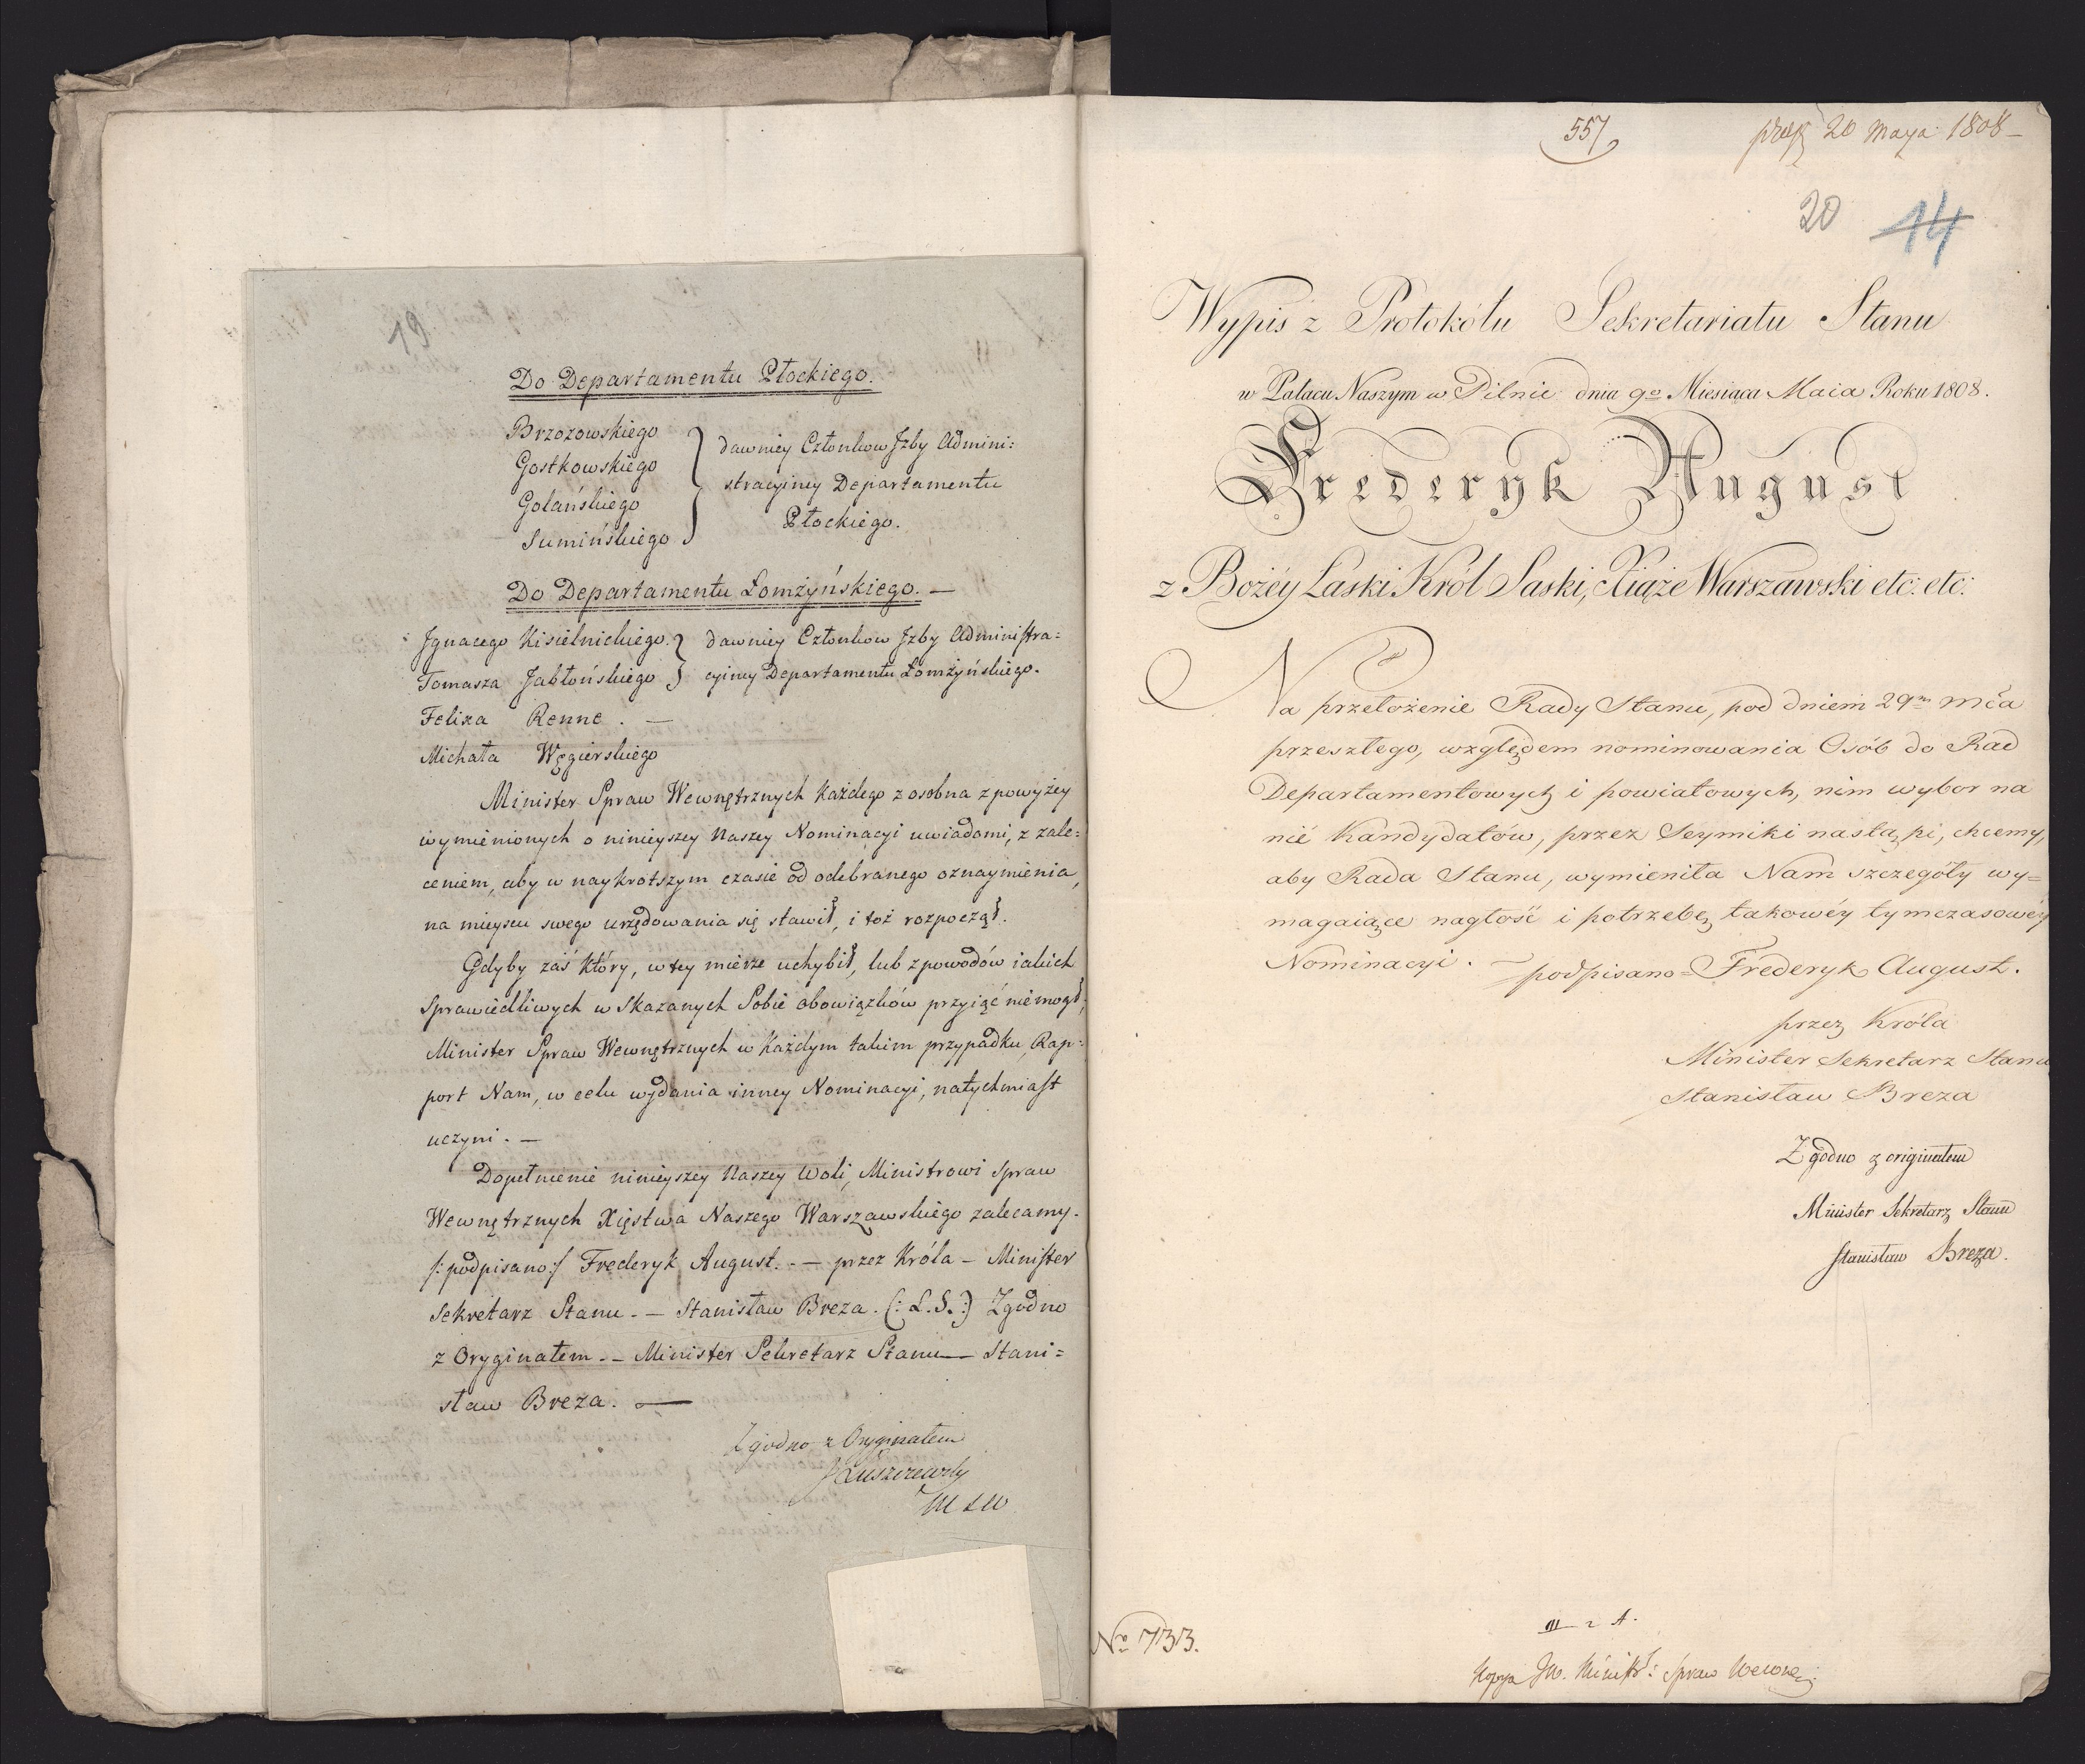 19
Do Departamentu Płockiego.
Brzozowskiego
Gostkowskiego
Golańskiego
Sumińskiego
dawniey Członkow Jzby Admini:
stracyiney Departamentu
Płockiego.
Do Departamentu Łomżyńskiego. —
Jgnacego Kisielnickiego.
Tomasza Jabłońskiego
dawniey Członkow Jzby Administra:
cyiney Departamentu Łomżyńskiego.
Felixa Renne. —
Michała Węgierskiego
Minister Spraw Wewnętrznych każdego z osobna z powyżey
wymienionych o ninieyszey Naszey Nominacyi uwiadomi, z zale:
ceniem, aby w naykrotszym czasie od odebranego oznaymienia,
na mieyscu swego urzędowania się stawił, i toż rozpoczął.
Gdyby zaś który, w tey mierze uchybił, lub z powodów iakich
sprawiedliwych wskazanych Sobie obowiązków przyiąć nie mogł,
Minister Spraw Wewnętrznych w każdym takim przypadku, Rap:
port Nam, w celu wydania inney Nominacyi, natychmiast
uczyni. —
Dopełnienie ninieyszey Naszey Woli, Ministrowi Spraw
Wewnętrznych Xięstwa Naszego Warszawskiego zalecamy.
/: podpisano :/ Frederyk August. — przez Króla — Minister
Sekretarz Stanu. — Stanisław Breza. (: L. S. :) Zgodno
z Oryginałem. — Minister Sekretarz Stanu — Stani=
sław Breza. —
Zgodno z Oryginałem
JŁuszczewski
M S W
557
20 Maya 1808 —
20 14
Wypis z Protokółu Sekretariatu Stanu
w Pałacu Naszym w Pilnic dnia 9o Miesiąca Maia Roku 1808.
Frederyk August
z Bożéy Łaski Król Saski, Xiąże Warszawski etc: etc:
Na przełożenie Rady Stanu, pod dniem 29m mca
przeszłego, względem nominowania Osób do Rad
Departamentowych i powiatowych, nim wybor na
nié Kandydatów, przez Seymiki nastąpi, chcemy,
aby Rada Stanu, wymieniła Nam szczegóły wy=
magaiące nagłość i potrzebę takowéy tymczasowéy
Nominacyi. — podpisano = Frederyk August.
przez Króla
Minister Sekretarz Stanu
Stanisław Breza
Zgodno z originałem
Minister Sekretarz Stanu
Stanisław Breza.
No 733.
III 2 A.
Kopya JW. Ministr: Spraw Wewnę: